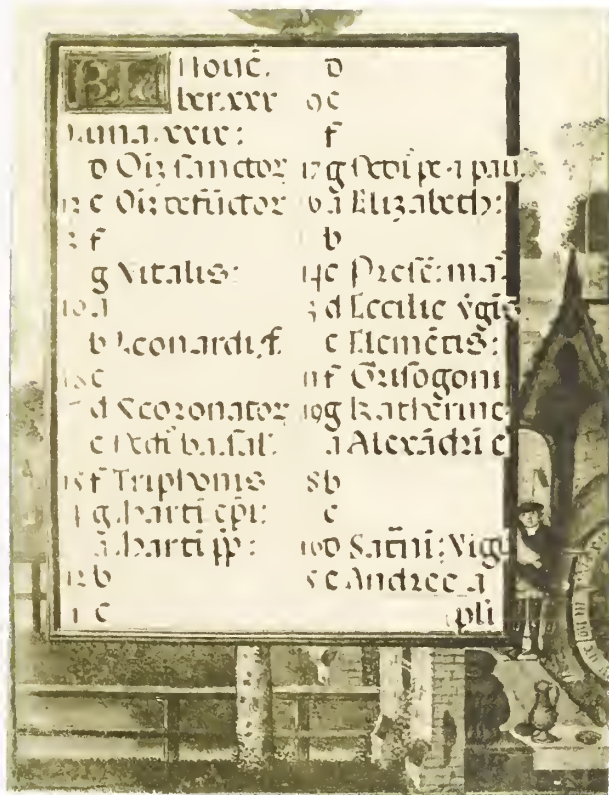 KL Nouē.
ber. xxx
Luna. xxix:
D Oīz sanctor
e Oīz defūctor
f
g Vitalis:
A
b Leonardi. f.
c
d coronator
e Dedi. ba. sal.
f Triphonis
g Marti epi:
A Marti pp:
b
c
D
9 e
f
17 g Dedi pe. a pau
6 A Elizabeth:
b
14 c Presē: ma.
3 d Cecilie v̄gis
e Clemētis:
11 f Grisogoni
19 g Katherine
A Alexādri e
8 b
c
16 D Satn̄i: Vigi
5 e Andree. a
pli